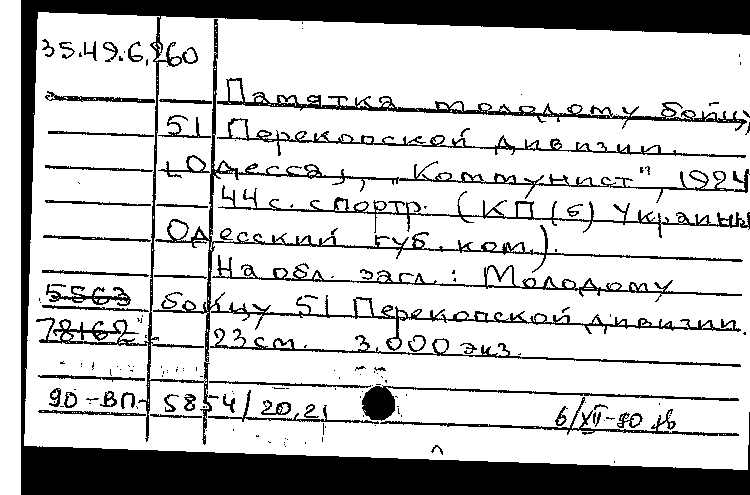 35.49.6.260
Памятка молодому бойцу
51 Перекопской дивизии.
[Одесса], „Коммунист", 1924
44 с. с портр. (КП(б) Украины
Одесский губ. ком.).
На обл. загл.: Молодому
5563 бойцу 51 Перекопской дивизии.
78162 23 см. 3.000 экз.
90-ВП-5854/20,21 6/XII-90